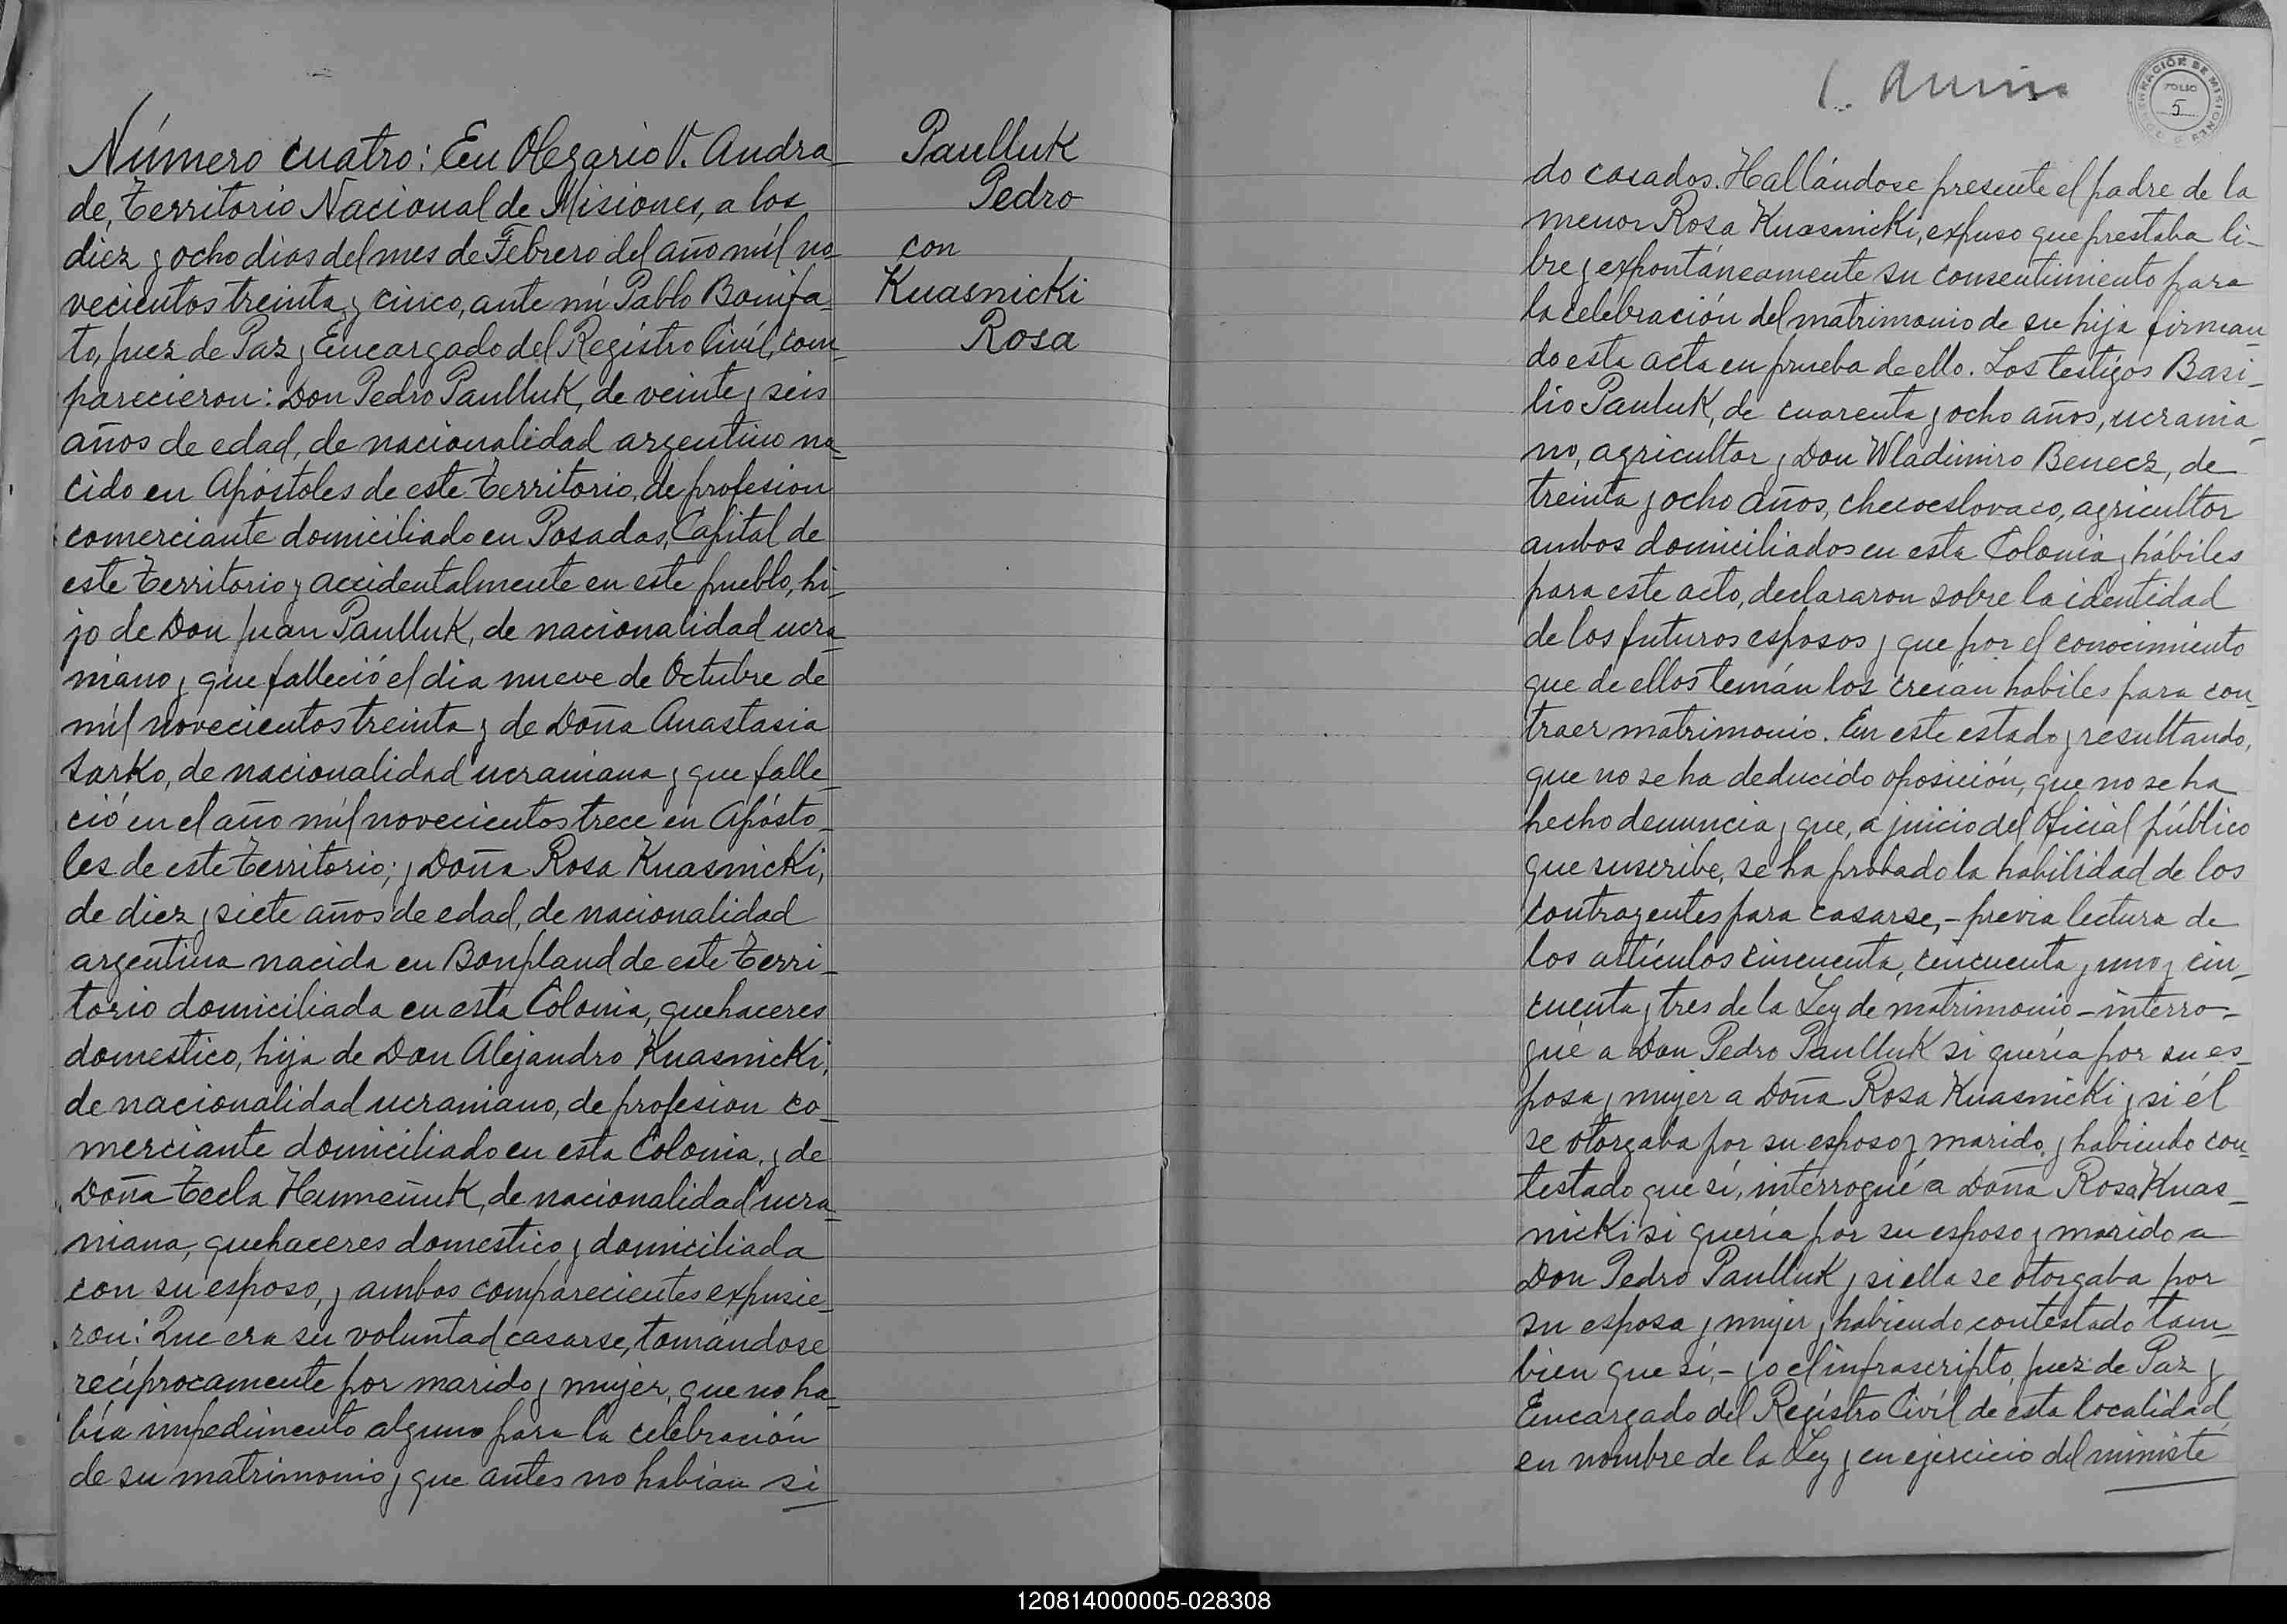 Número cuatro: En Olegario V. Andra
de, Territorio Nacional de Misiones, a los
diez y ocho dias del mes de Febrero del año mil no-
vecientos treinta y cinco, ante mí Pablo Bonifa-
to, Juez de Paz y Encargado del Registro Civil, com-
parecieron: Don Pedro Paulluk, de veinte y seis
años de edad, de nacionalidad argentino na-
cido en Apóstoles de este Territorio, de profesion
comerciante domiciliado en Posadas, Capital de
este Territorio y accidentalmente en este pueblo, hi-
jo de Don Juan Paulluk, de nacionalidad ucra-
niano y que falleció el dia nueve de Octubre de
mil novecientos treinta y de Doña Anastasia
Sarko, de nacionalidad ucraniana y que falle-
ció en el año mil novecientos trece en Apósto-
les de este Territorio; y Doña Rosa Kuasnicki,
de diez y siete años de edad, de nacionalidad
argentina nacida en Bonpland de este Terri-
torio domiciliada en esta Colonia, quehaceres
domestico, hija de Don Alejandro Kuasnicki,
de nacionalidad ucraniano, de profesion co-
merciante domiciliado en esta Colonia, y de
Doña Tecla Humeñuk, de nacionalidad ucra-
niana, quehaceres domestico y domiciliada
con su esposo, y ambos comparecientes expusie-
ron: Que era su voluntad casarse, tomándose
recíprocamente por marido y mujer, que no ha-
bía impedimento alguno para la celebración
de su matrimonio y que antes no habían si
Paulluk
Pedro
con
Kuasnicki
Rosa
GOBERNACIÓN DE MISIONES
FOLIO
5
do casados. Hallándose presente el padre de la
menor Rosa Kuasnicki, expuso que prestaba li-
bre y expontáneamente su consentimiento para
la celebración del matrimonio de su hija firman-
do esta acta en prueba de ello. Los testigos Basi-
lio Pauluk, de cuarenta y ocho años, ucrania-
no, agricultor y Don Wladimiro Benecz, de
treinta y ocho años, checoeslovaco, agricultor
ambos domiciliados en esta Colonia y hábiles
para este acto, declararon sobre la identidad
de los futuros esposos y que por el conocimiento
que de ellos tenían los creían habiles para con-
traer matrimonio. En este estado y resultando,
que no se ha deducido oposición, que no se ha
hecho denuncia y que, a juicio del Oficial público
que suscribe, se ha probado la habilidad de los
contrayentes para casarse, - previa lectura de
los artículos cincuenta, cincuenta y uno y cin-
cuenta y tres de la Ley de matrimonio - interro-
gué a Don Pedro Paulluk si quería por su es-
posa y mujer a Doña Rosa Kuasnicki y si él
se otorgaba por su esposo y marido, y habiendo con-
testado que sí, interrogué a Doña Rosa Kuas-
nicki si quería por su esposo y marido a
Don Pedro Paulluk y si ella se otorgaba por
su esposa y mujer y habiendo contestado tam-
bien que sí, - yo el infrascripto, Juez de Paz y
Encargado del Registro Civil de esta localidad
en nombre de la Ley y en ejercicio del ministe
120814000005-028308